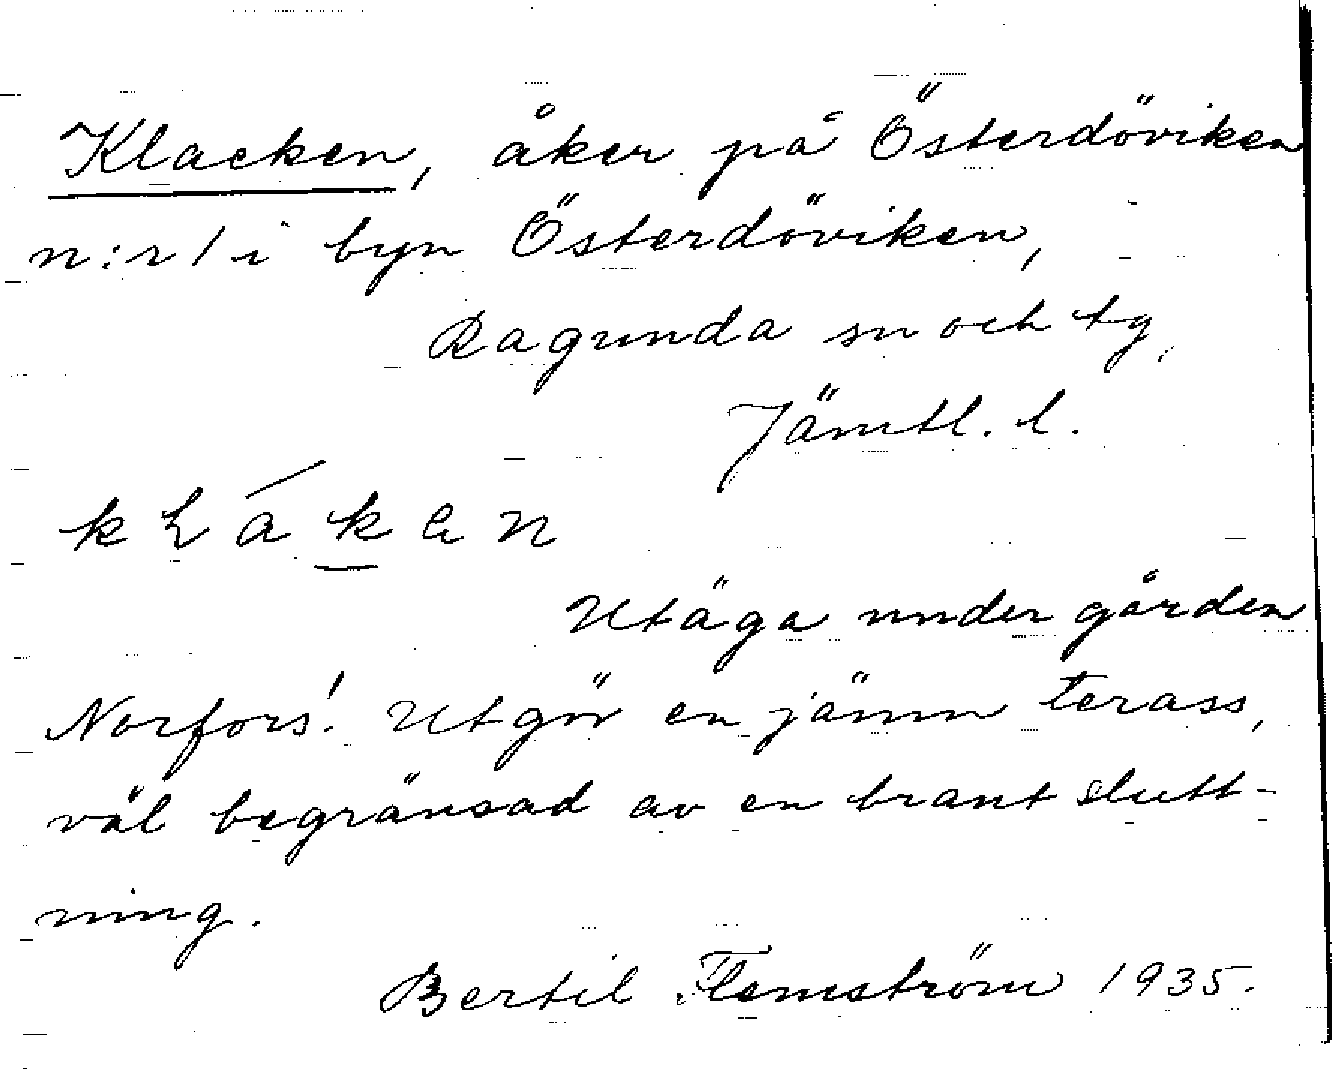 Klacken, åker på Österdöviken
n:r 1 i byn Österdöviken,
Ragunda sn och tg,
Jämtl. l.
k L á k e n
Utäga under gården
Norfors! Utgör en jämn terass,
väl begränsad av en brant slutt-
ning.
Bertil Flemström 1935.